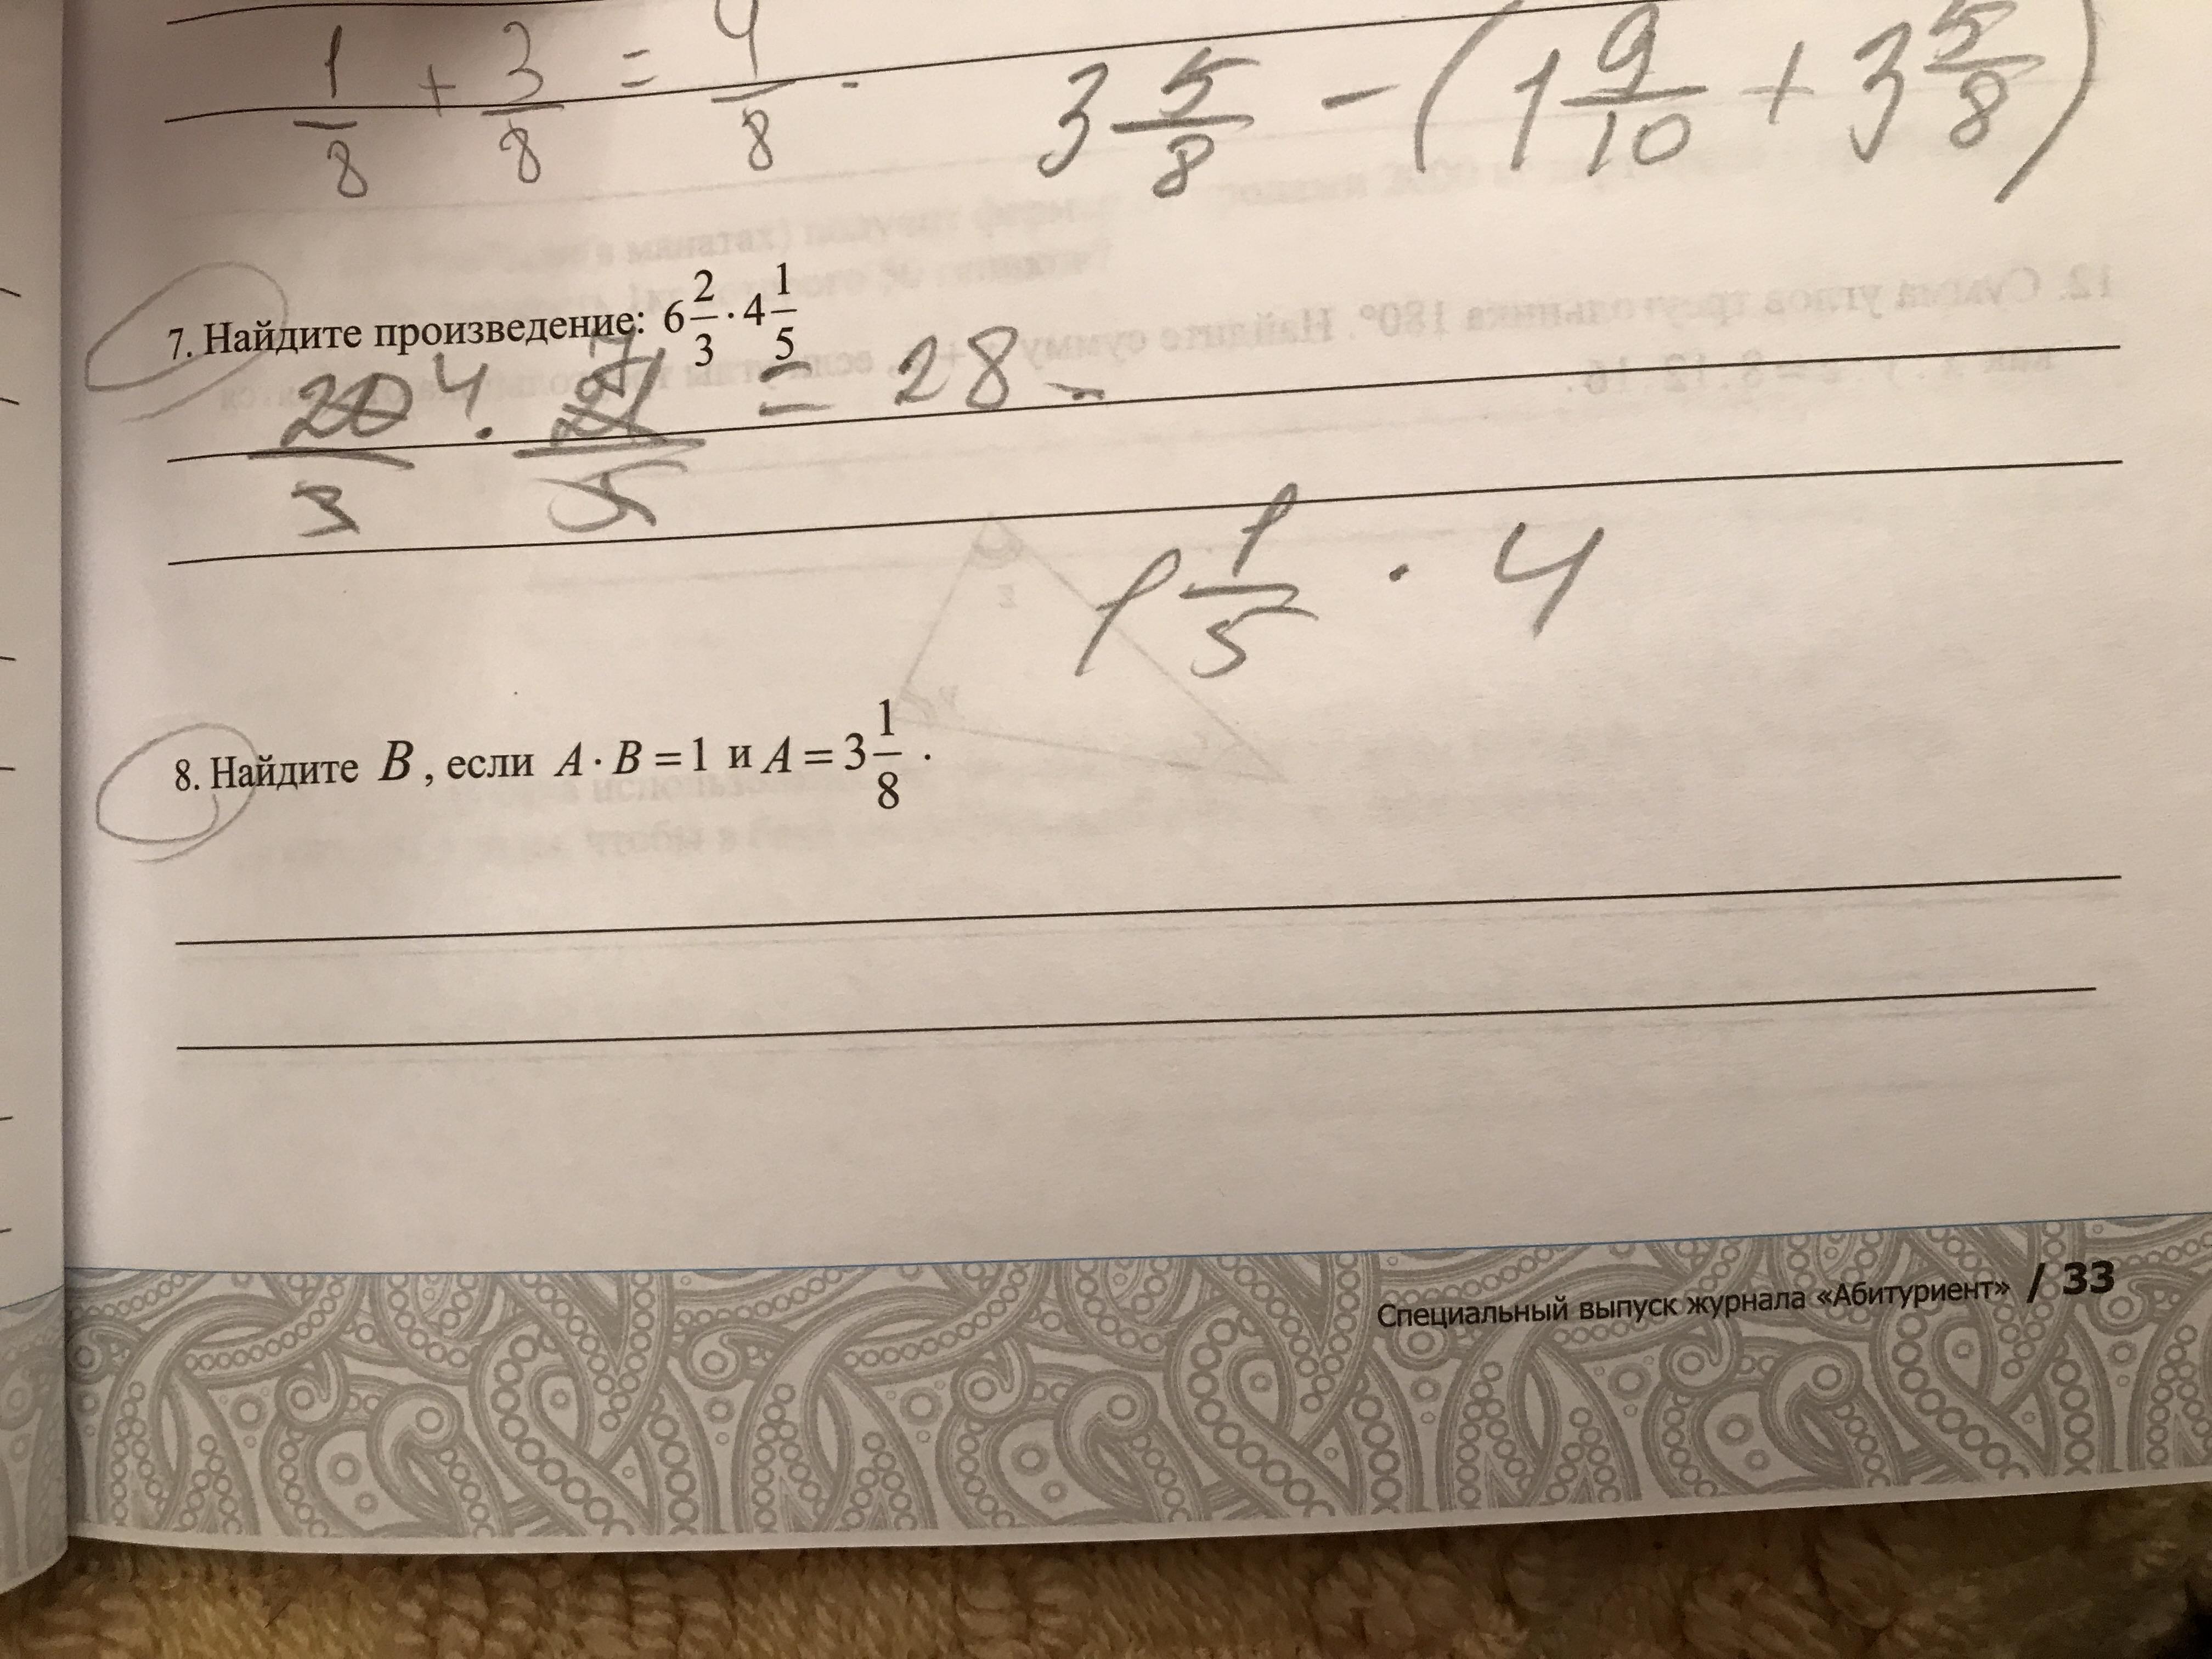 1/8 + 3/8 = 4/8 . 3 5/8 - (1 9/10 + 3 5/8)
7. Найдите произведение: 6 2/3 · 4 1/5
20/3 4 · 21/5 7 = 28 -
1 1/5 · 4
8. Найдите B, если A · B = 1 и A = 3 1/8 .
Специальный выпуск журнала «Абитуриент» / 33